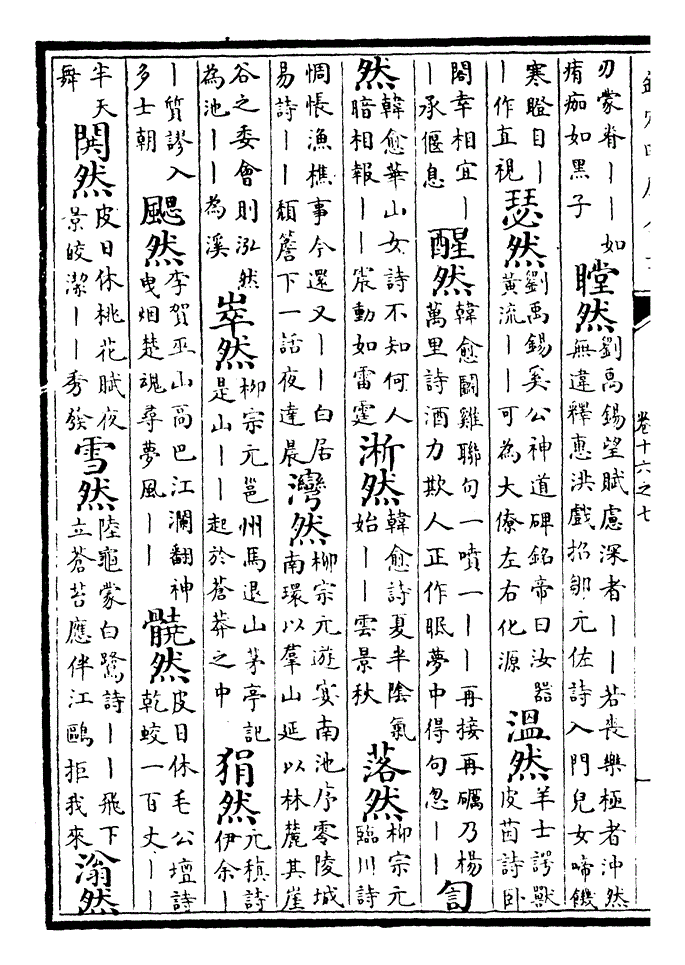 卷十六之七
刃蒙脊｜｜如
瘠痂如黑子
瞠然
劉禹錫望賦慮深者｜｜若喪樂極者沖然
無違釋惠洪戲招鄒元佐詩入門兒女啼饑
寒瞪目｜
｜作直視
瑟然
劉禹錫奚公神道碑銘帝曰汝器
黃流｜｜可為大僚左右化源
溫然
羊士諤獸
皮茵詩卧
閤幸相宜｜
｜承偃息
醒然
韓愈鬭雞聯句一噴一｜｜再接再礪乃楊
萬里詩酒力欺人正作眠夢中得句忽｜｜
訇
然
韓愈華山女詩不知何人
暗相報｜｜宸動如雷霆
淅然
韓愈詩夏半陰氣
始｜｜雲景秋
落然
柳宗元
臨川詩
惆悵漁樵事今還又｜｜白居
易詩｜｜頹簷下一話夜達晨
灣然
柳宗元遊宴南池序零陵城
南環以羣山延以林麓其崖
谷之委會則泓然
為池｜｜為溪
崒然
柳宗元邕州馬退山茅亭記
是山｜｜起於蒼莽之中
狷然
元稹詩
伊余｜
｜質謬入
多士朝
颸然
李賀巫山高巴江瀾翻神
曳烟楚魂尋夢風｜｜
髐然
皮日休毛公壇詩
乾蛟一百丈｜｜
半天
舞
閧然
皮日休桃花賦夜
景皎潔｜｜秀發
雪然
陸龜蒙白鷺詩｜｜飛下
立蒼苔應伴江鷗拒我來
滃然